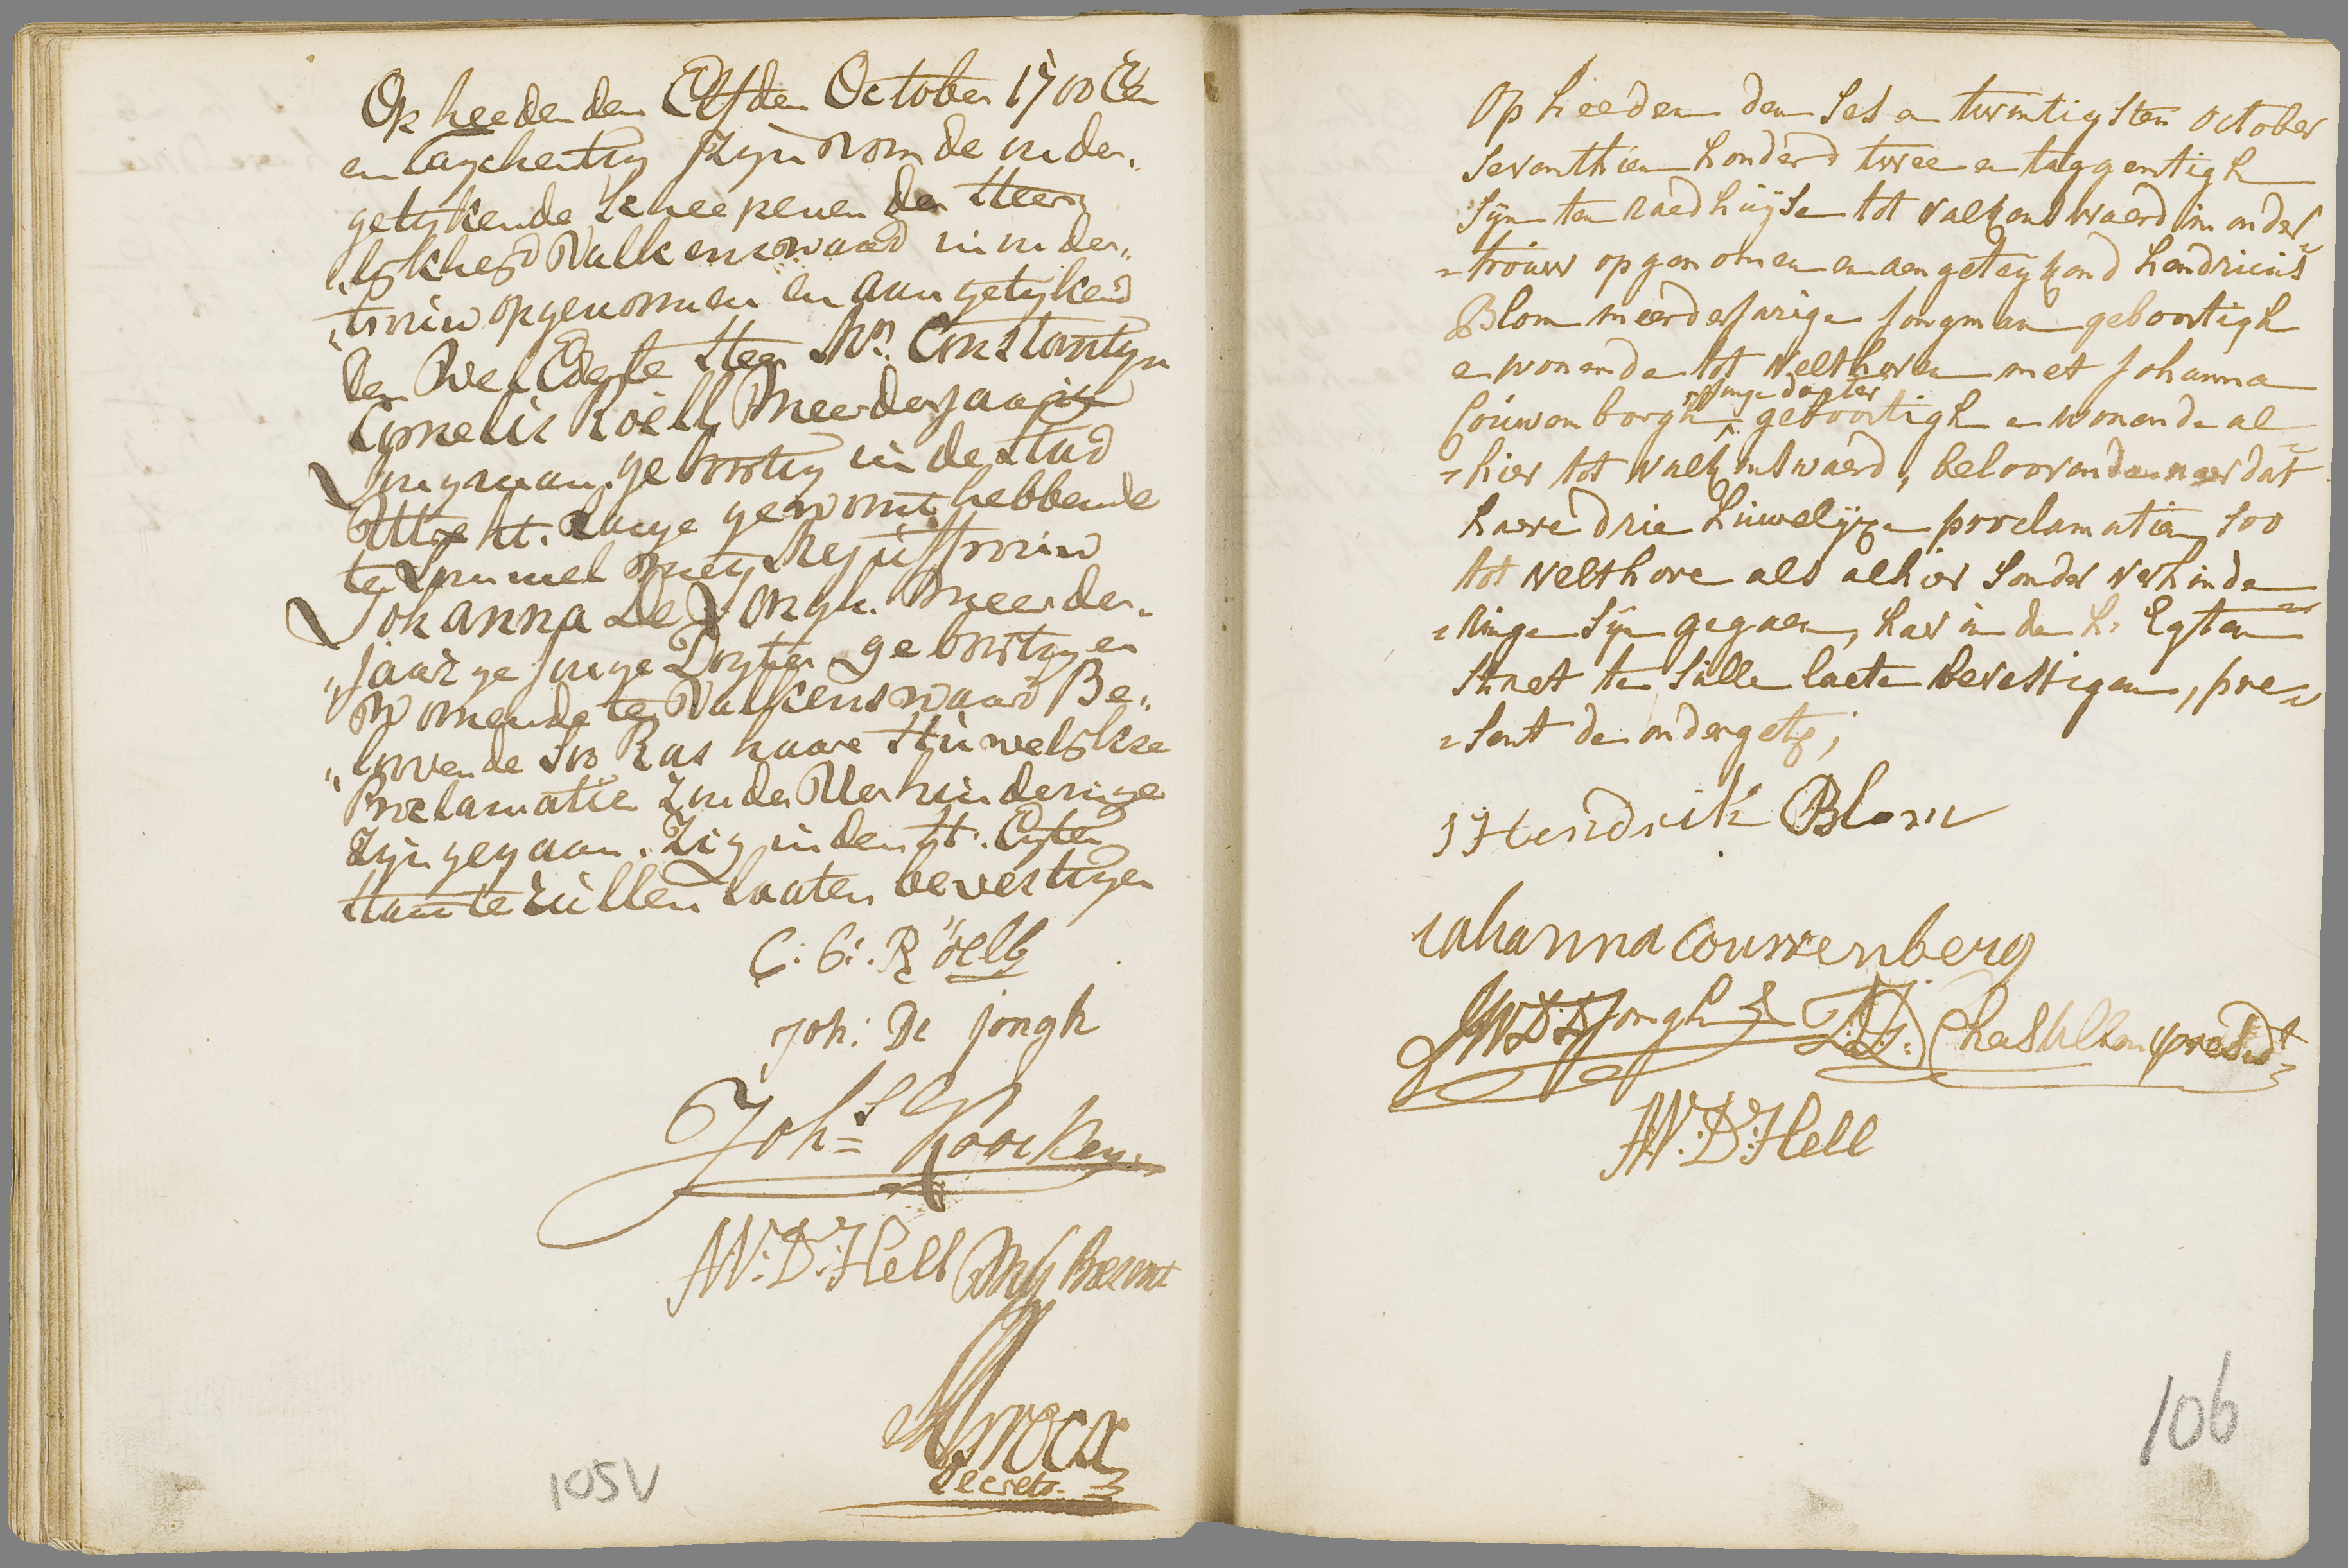 Op heeden den Elfden October 1700 Een
en Taychentig Zyn Voor de onder„
getykende Scheepenen der Heer„
„lykheyd Valkenswaard in onder„
„trouw opgenomen en aangetykend
den Wel Edele Heer Mr. Constantyn
Cornelis Röell Meerderjaarig
Jongman. geboortig in de Stad
Uttreht. Lange gewoont hebbende
te Lommel mey Mejuffrouw
Johanna De Jongh. Meerder„
„jaarge Jonge Dogter geboortig en
Wonende te Valkenswaard Be„
„lovende Soo Ras haare Huwelykse
Proclamatie Zonder Verhinderinge
Zyn gegaan. Zig in den H. Egten
Staat te Zullen laaten bevestigen
C: C: Röell
Joh: De jongh
Johs Koocken
W: D: Hell Mij Present
Secrets.
105V
Op heeden den ses en twintigsten october
seventhien honderd twee en taggentigh
sijn ten raedhuijse tot valkenswaerd in onder„
„trouw opgenomen en aengeteykend hendricus
Blom meerderjarige jongman geboortigh
en wonende tot Velthoven met johanna
Couwenborgh jonge dogter geboortigh en wonende al„
„hier tot valkenswaerd, beloovende naerdat
haere drie huwelijke proclamatien soo
tot velthove als alhier sonder verhinde„
„ringe sijn gegaen, haer in den h: Egten
staet te sulle laete bevestigen, pre„
„sent de ondergetz;
Hendrik Blom
iohanna couwenberg
JWD Djongh presidt
W: D: Hell
106